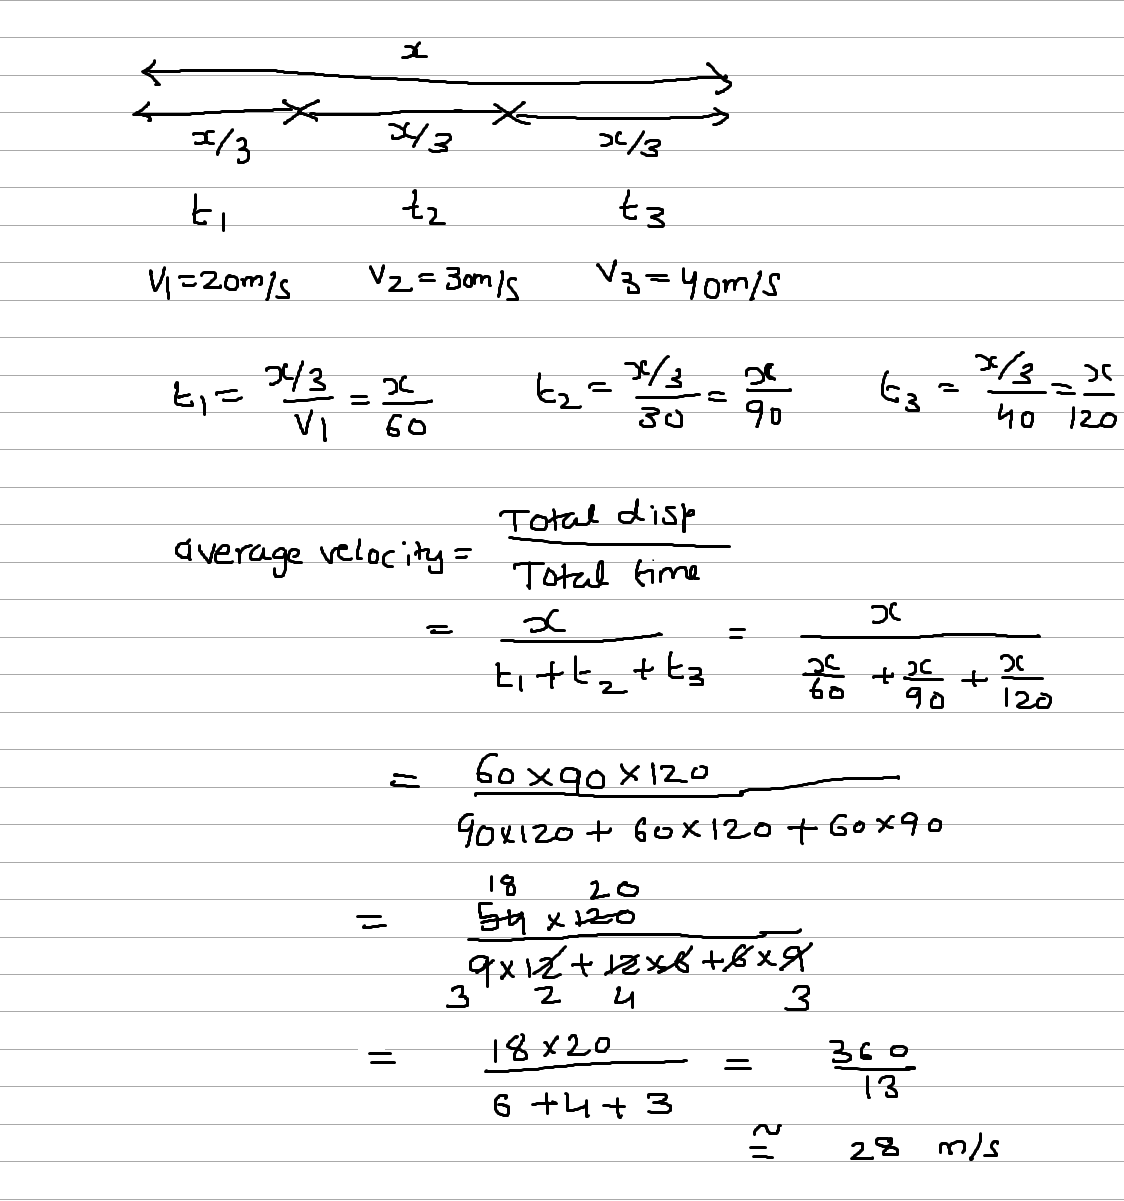 x
x/3 x/3 x/3
t1 t2 t3
V1=20m/s V2=30m/s V3=40m/s
t1 = (x/3)/V1 = x/60 t2 = (x/3)/30 = x/90 t3 = (x/3)/40 = x/120
average velocity = Total disp / Total time
= x/(t1+t2+t3) = x/(x/60 + x/90 + x/120)
= 60×90×120 / (90×120 + 60×120 + 60×90)
18 20
= 54 × 120 / (9×12 + 12×6 + 6×9)
3 2 4 3
= 18×20 / (6+4+3) = 360/13
≅ 28 m/s